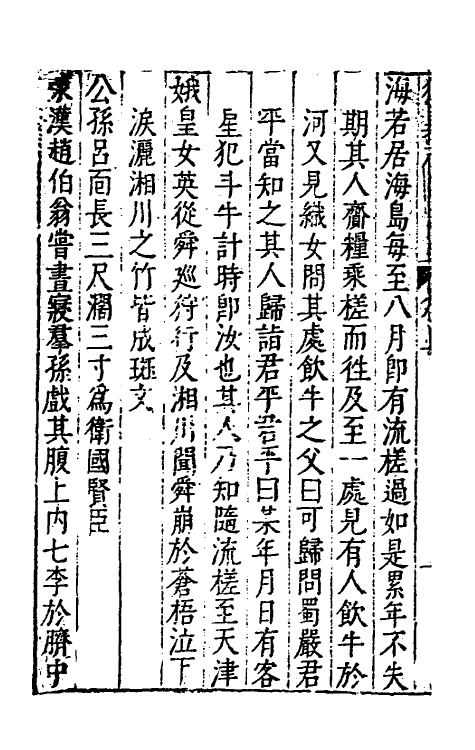 海若居海島每至八月即有流槎過如是累年不失
期其人齎糧乘槎而徃及至一處見有人飲牛於
河又見織女問其處飲牛之父曰可歸問蜀嚴君
平當知之其人歸詣君平君平曰某年月日有客
星犯斗牛計時即汝也其人乃知隨流槎至天津
娥皇女英從舜廵狩行及湘川聞舜崩於蒼梧泣下
淚灑湘川之竹皆成斑文
公孫呂面長三尺濶三寸為衛國賢臣
東漢趙伯翁嘗晝寢羣孫戲其腹上内七李於臍中